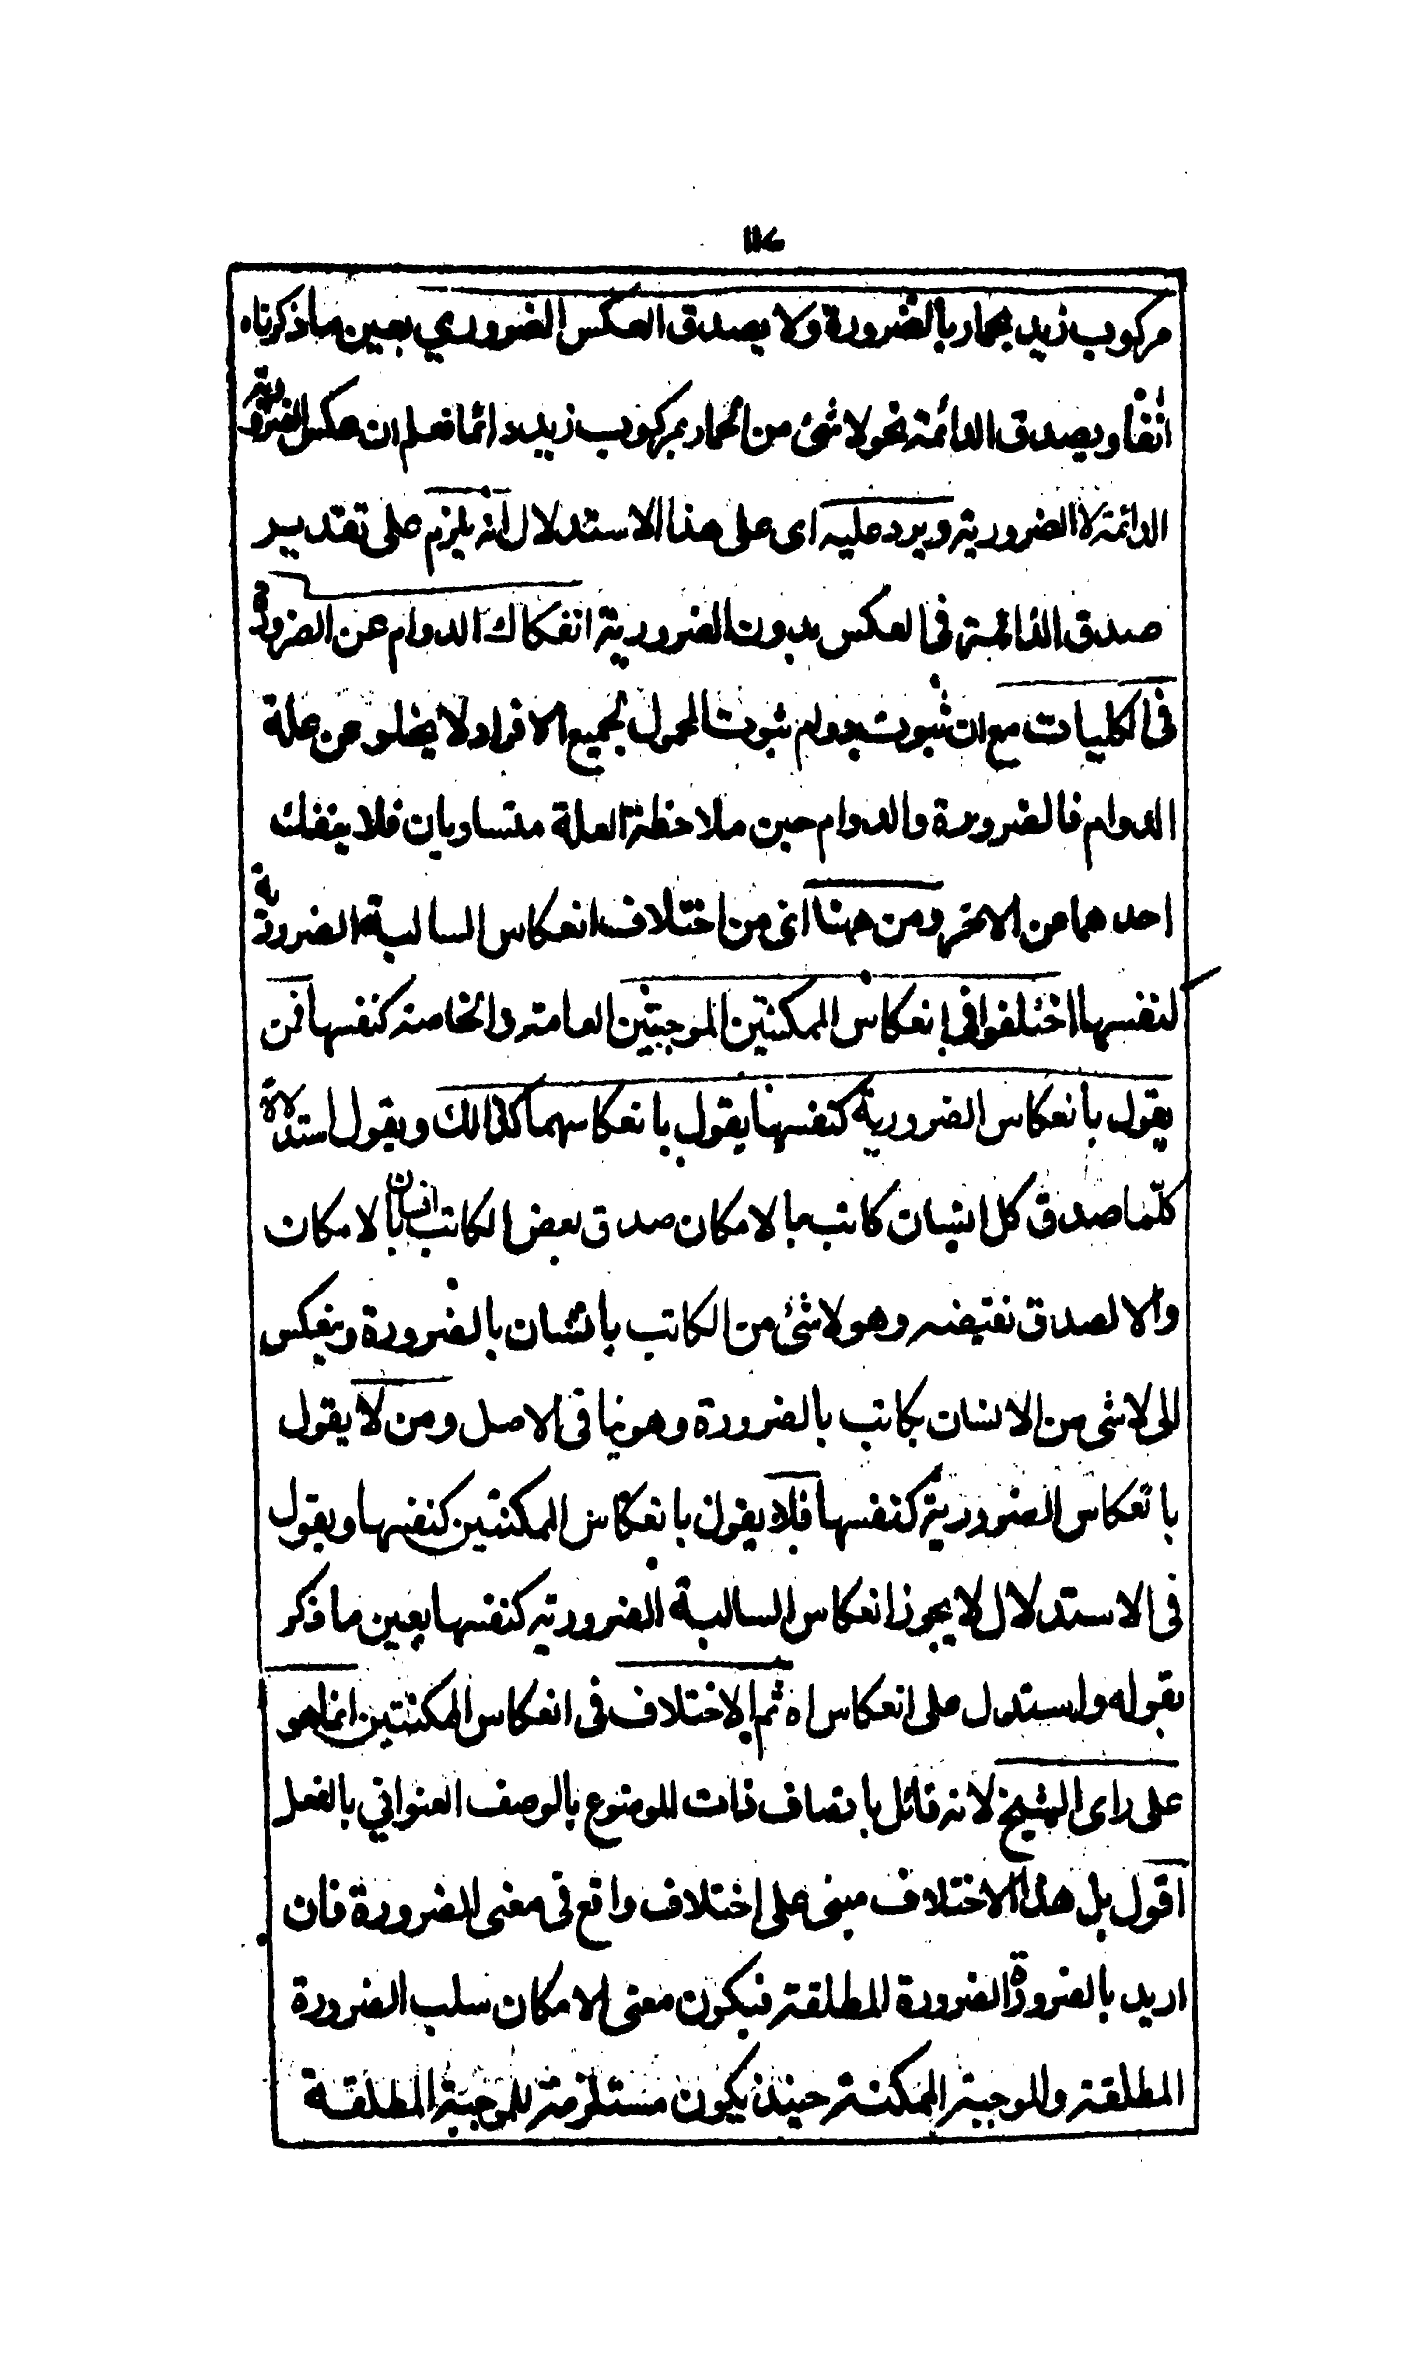 مركوب زيد بحمار بالضرورة ولا يصدق العكس الضروري بعين ما ذكرناه
انفا ويصدق الدائمة نحو لا شئ من الحمار بمركوب زيد دائما فعلم ان عكس الضرورية
الدائمة لا الضرورية ويرد عليه اى على هذا الاستدلال انه يلزم على تقدير
صدق الدائمة فى العكس بدون الضرورية انفكاك الدوام عن الضرورة
فى الكليات مع ان ثبوت بدوام ثبوت المحمول لجميع الافراد لا يخلو عن علة
الدوام فالضرورة والدوام حين ملاحظة العلة متساويان فلا ينفك
احدهما عن الاخر ومن ههنا اى من اختلاف انعكاس السالبة الضرورية
لنفسها اختلفوا فى انعكاس الممكنتين الموجبتين العامة والخاصة كنفسها فمن
يقول بانعكاس الضرورية كنفسها يقول بانعكاسهما كذالك ويقول استدلالا
كلّما صدق كل انسان كاتب بالامكان صدق بعض الكاتب انسان بالامكان
والا لصدق نقيضه وهو لا شئ من الكاتب بانسان بالضرورة وينعكس
الى لا شى من الانسان بكاتب بالضرورة وهو ينافى الاصل ومن لا يقول
بانعكاس الضرورية كنفسها فلا يقول بانعكاس الممكنتين كنفسها ويقول
فى الاستدلال لا يجوز انعكاس السالبة الضرورية كنفسها بعين ما ذكر
بقوله واستدل على انعكاس اه ثم الاختلاف فى انعكاس الممكنتين انما هو
على راى الشيخ لانه قائل باتصاف ذات الموضوع بالوصف العنواني بالفعل
اقول بل هذا الاختلاف مبنى على اختلاف واقع فى معنى الضرورة فان
اريد بالضرورة الضرورة المطلقة فيكون معنى الامكان سلب الضرورة
المطلقة والموجبة الممكنة حينئذ يكون مستلزمة للموجبة المطلقة